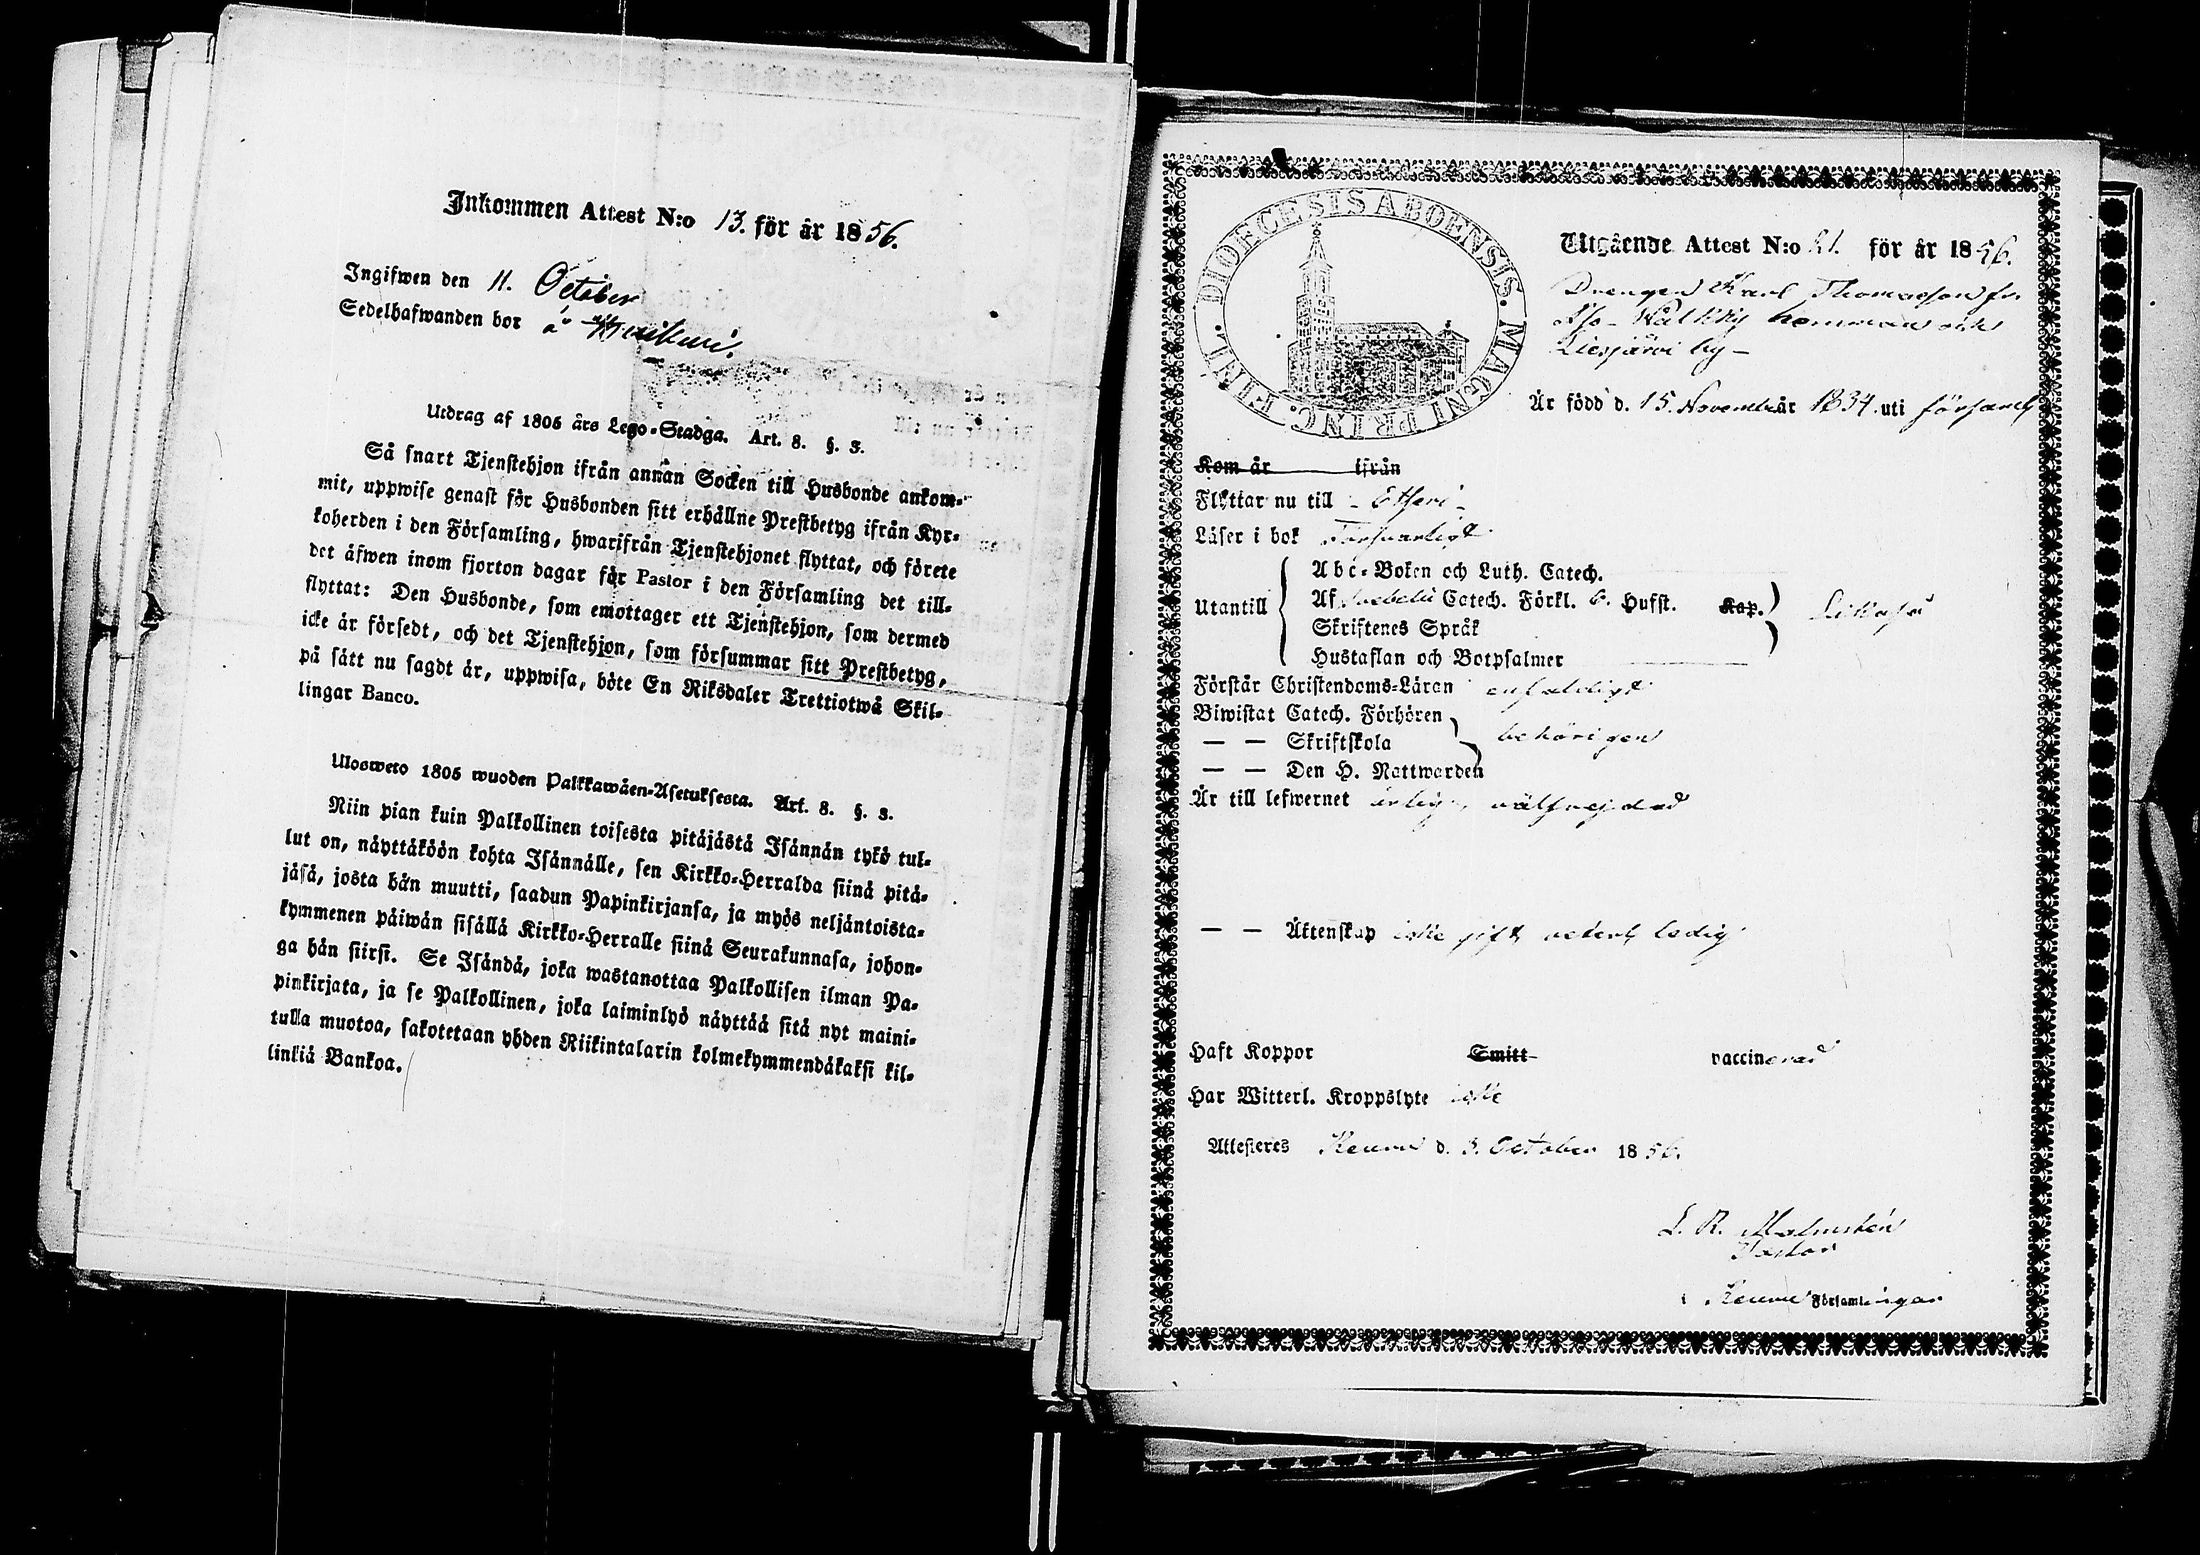 Inkommen Attest N:o 13. för år 1856.
Ingifwen den 11. October
Sedelhafwanden bor å
Utdrag af 1805 års Lego-Stadga. Art. 8. §. 3.
Så snart Tjenstehjon ifrån annan Socken till Husbonde ankom-
mit, uppwise genast för Husbonden sitt erhållne Prestbetyg ifrån Kyr-
koherden i den Församling, hwarifrån Tjenstehjonet flyttat, och förete
det äfwen inom fjorton dagar för Pastor i den Församling det till-
flyttat: Den Husbonde, som emottager ett Tjenstehjon, som dermed
icke är försedt, och det Tjenstehjon, som försummar sitt Prestbetyg,
på sätt nu sagdt är, uppwisa, böte En Riksdaler Trettiotwå Skil-
lingar Banco.
Ulosweto 1805 wuoden Palkkawäen-Asetuksesta. Art. 8. §. 3.
Niin pian kuin Palkollinen toisesta pitäjästä Isännän tykö tul-
lut on, näyttäköön kohta Isännälle, sen Kirkko-Herralda siinä pitä-
jäsä, josta hän muutti, saadun Papinkirjansa, ja myös neljäntoista-
kymmenen päiwän sisällä Kirkko-Herralle siinä Seurakunnasa, johon-
ga hän siirsi. Se Isändä, joka wastanottaa Palkollisen ilman Pa-
pinkirjata, ja se Palkollinen, joka laiminlyö näyttää sitä nyt maini-
tulla muotoa, sakotetaan yhden Riikintalarin kolmekymmendäkaksi kil-
linkiä Bankoa.
DIOECESIS ABOENSIS. MAGNI PRINC. FINL.
Utgående Attest N:o 21. för år 1856.
Drengen Karl Thomasson fr.
hemman och
Liesjärvi by
Är född d. 15. November år 1834. uti församl
Kom år ifrån
Flyttar nu till - Etseri -
Läser i bok Försvarligt
Utantill
Abc-Boken och Luth. Catech.
Af Svebelii Catech. Förkl. 6. Hufst. Kap.
Skriftenes Språk
Hustaflan och Botpsalmer
Likaså
Förstår Christendoms-Läran enfaldigt
Biwistat Catech. Förhören
— — Skriftskola
behörigen
— — Den H. Nattwarden
Är till lefwernet ärlig, välfrejdad
— — Äktenskap icke gift, ledig
Haft Koppor Smitt vaccinerad
Har Witterl. Kroppslyte icke
Attesteres Keuru d. 3. October 1856.
L. R. Malmstén
Pastor
i Keuru Församlingar